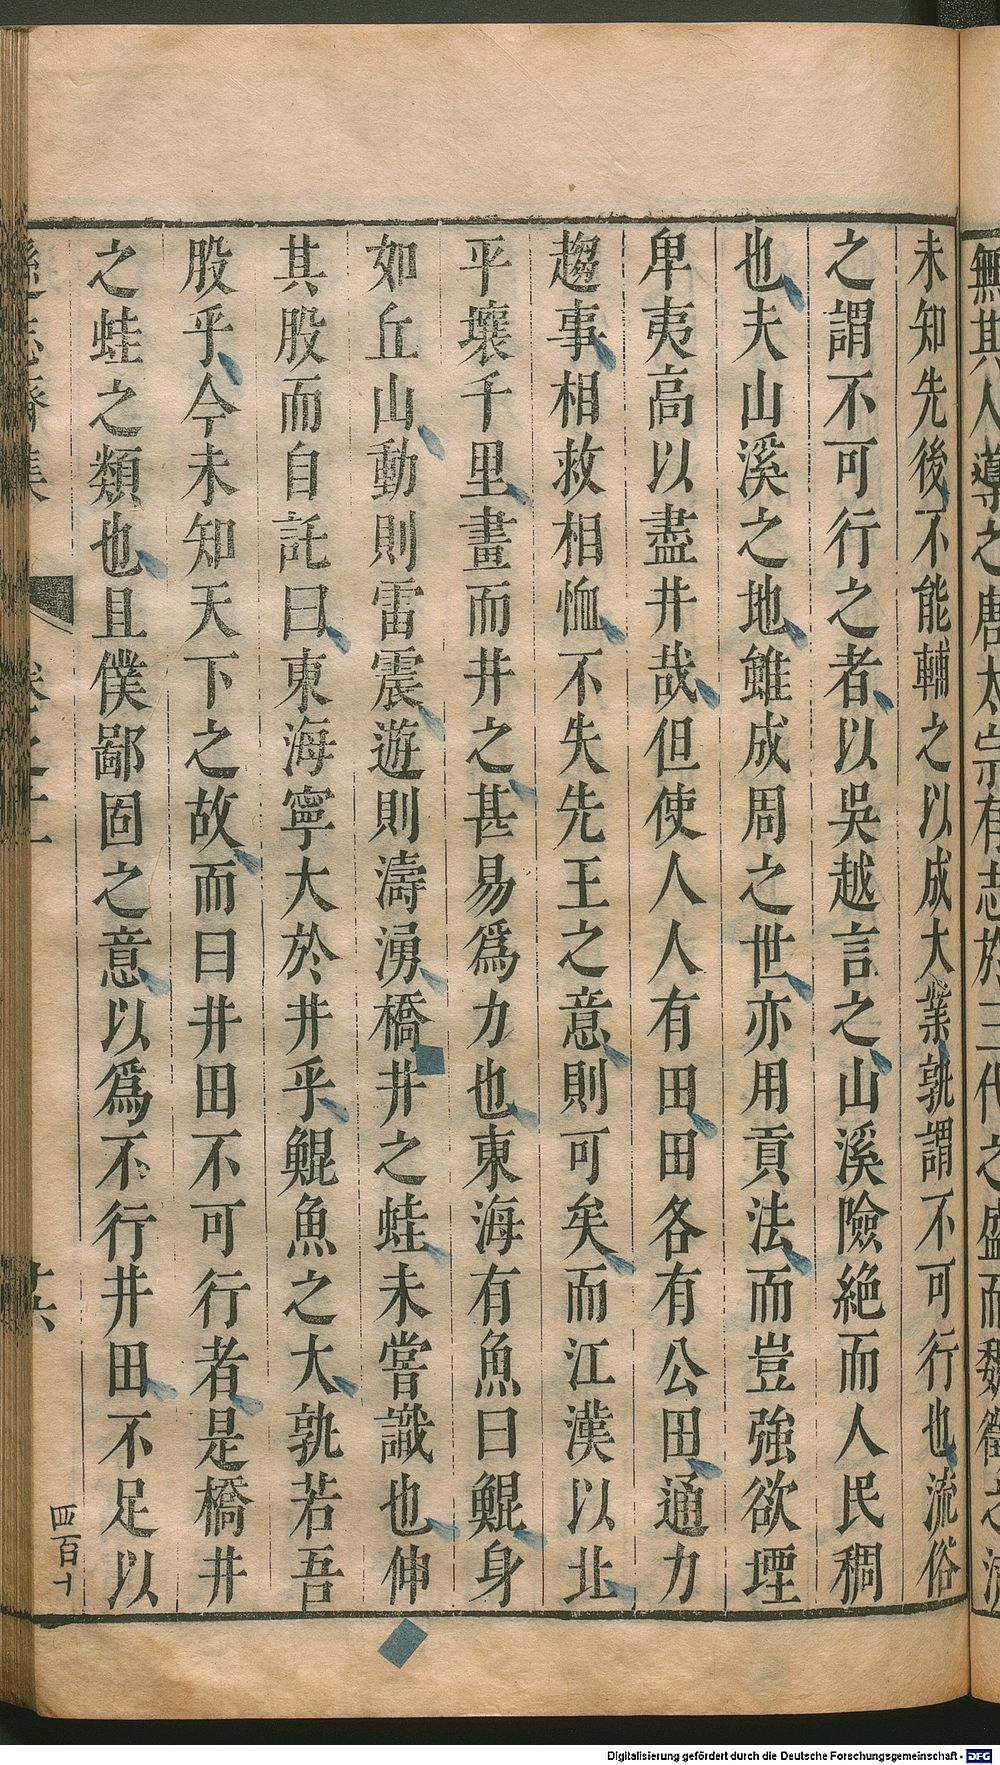 無其人導之唐太宗有志於三代之盛而魏徵之
未知先後不能輔之以成大業孰謂不可行也流俗
之謂不可行之者以吳越言之山溪險絕而人民稠
也夫山溪之地雖成周之世亦用貢法而豈強欲堙
卑夷高以盡井哉但使人人有田田各有公田通力
趨事相救相恤不失先王之意則可矣而江漢以北
平壤千里畫而井之甚易為力也東海有魚曰鯤身
如丘山動則雷震遊則濤湧橋井之蛙未嘗識也伸
其股而自託曰東海寧大於井乎鯤魚之大孰若吾
股乎今未知天下之故而曰井田不可行者是橋井
之蛙之類也且僕鄙固之意以為不行井田不足以
遜志齋集
卷之十一
廿六
四百十
Digitalisierung gefördert durch die Deutsche Forschungsgemeinschaft - DFG